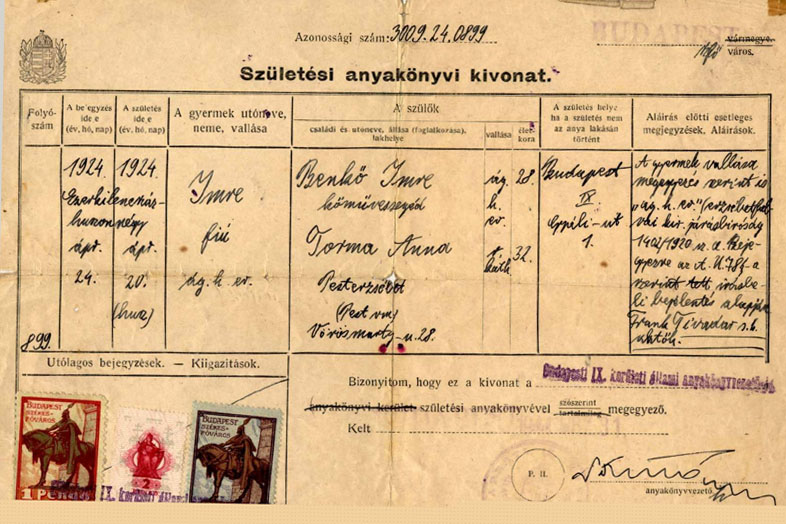 Azonossági szám: 3009.24.0899
BUDAPEST
vármegye.
város.
Születési anyakönyvi kivonat.
Folyó-
szám
A bejegyzés
ideje
(év, hó, nap)
A születés
ideje
(év, hó, nap)
A gyermek utóneve,
neme, vallása
A szülők
családi és utóneve, állása (foglalkozása),
lakhelye
vallása
élet-
kora
A születés helye
ha a születés nem
az anya lakásán
történt
Aláírás előtti esetleges
megjegyzések. Aláírások.
899.
1924
Ezerkilenczáz-
huszonnégy
ápr.
24.
1924.
ápr.
20.
(husz)
Imre
fiú
ág. h. ev.
Benkő Imre
kőművessegéd
Torma Anna
Pesterzsébet
(Pest vm)
Vörösmarty-u. 28.
ág.
h.
ev.
r.
kath.
28
32.
Budapest
IX.
Gyáli-ut
1.
A gyermek vallása
megegyezés szerint is
"ág. h. ev." (erzsébetfal-
vai kir. járásbíróság
1402/1920
szerint tett írásbe-
li bejelentés alapján
Frank Tivadar s. k.
Utólagos bejegyzések. — Kiigazítások.
Bizonyítom, hogy ez a kivonat a Budapesti IX. kerületi állami anyakönyvvezetőség
anyakönyvi kerület születési anyakönyvével szószerint
tartalmilag megegyező.
Kelt
P. H.
anyakönyvvezető
BUDAPEST
SZÉKES-
FŐVÁROS
1 PENGŐ
2
BUDAPEST
SZÉKES-
FŐVÁROS
IX. kerületi állami anyakönyvvezető